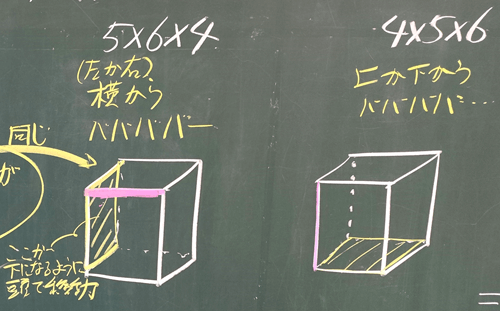 5×6×4
(左か右)
横から
バババババー
同じ
が
ここが
下になるように
頭で移動
4×5×6
上か下から
ババババ…